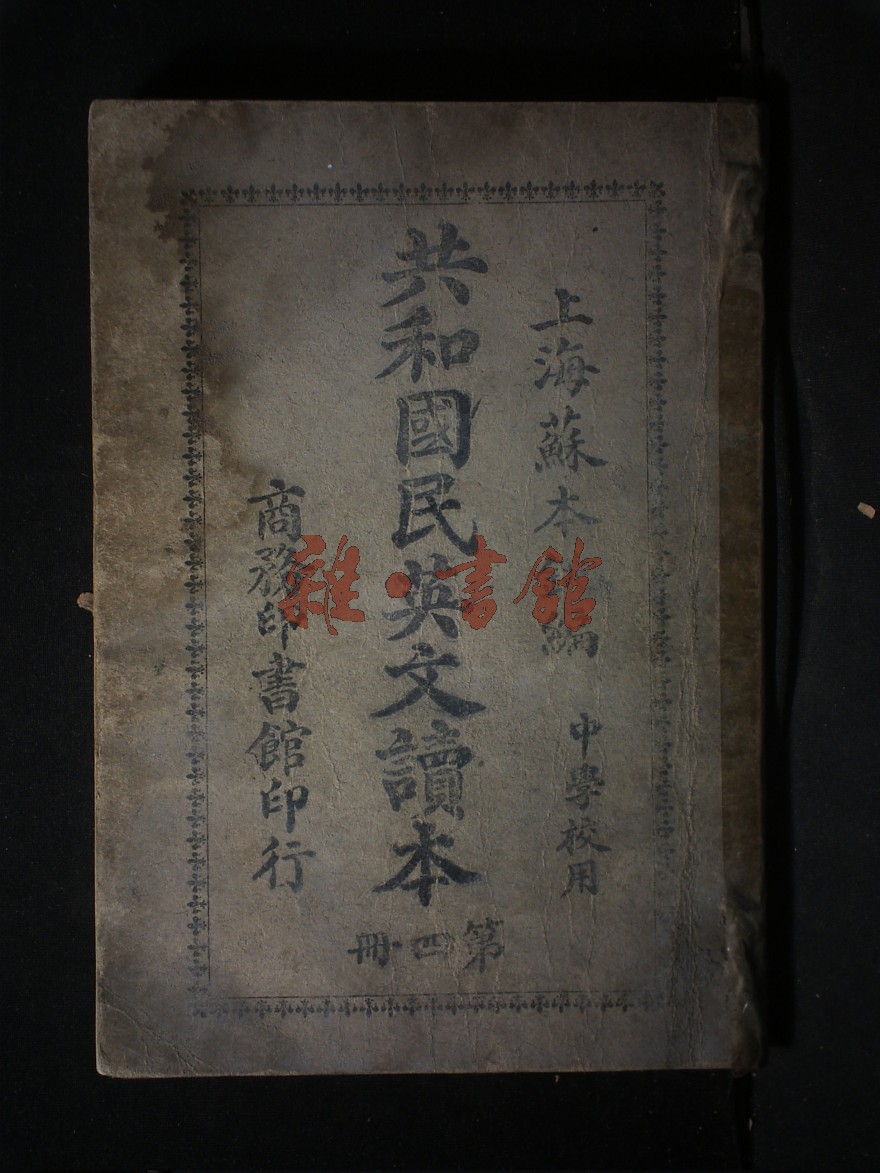 上海蘇本編
中學校用
共和國民英文讀本
第四冊
商務印書館印行
雜·書館